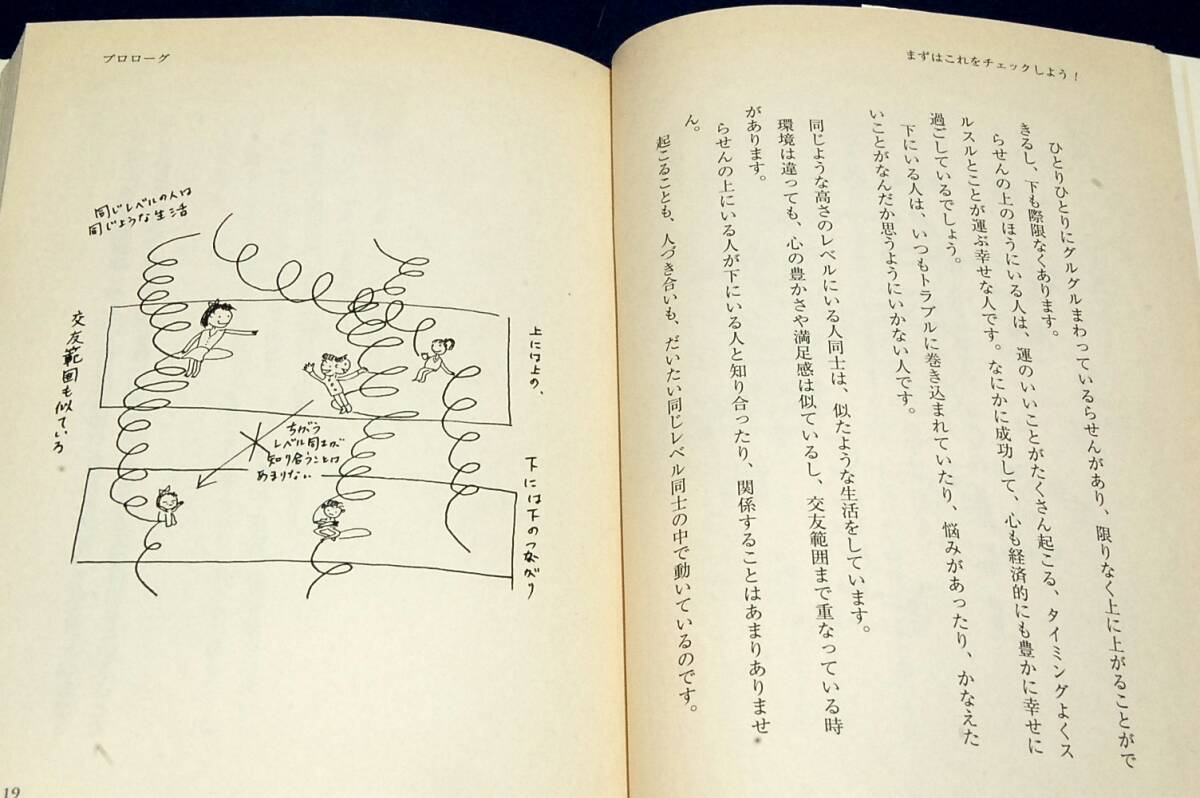 まずはこれをチェックしよう!
ひとりひとりにグルグルまわっているらせんがあり、限りなく上に上がることがで
きるし、下も際限なくあります。
らせんの上のほうにいる人は、運のいいことがたくさん起こる、タイミングよくス
ルスルとことが運ぶ幸せな人です。なにかに成功して、心も経済的にも豊かに幸せに
過ごしているでしょう。
下にいる人は、いつもトラブルに巻き込まれていたり、悩みがあったり、かなえた
いことがなんだか思うようにいかない人です。
同じような高さのレベルにいる人同士は、似たような生活をしています。
環境は違っても、心の豊かさや満足感は似ているし、交友範囲まで重なっている時
があります。
らせんの上にいる人が下にいる人と知り合ったり、関係することはあまりありませ
ん。
起こることも、人づき合いも、だいたい同じレベル同士の中で動いているのです。
プロローグ
同じレベルの人は
同じような生活
上には上の、
下には下のつながり
ちがう
レベル同士が
知り合うことは
あまりない
交友範囲も似ている
19